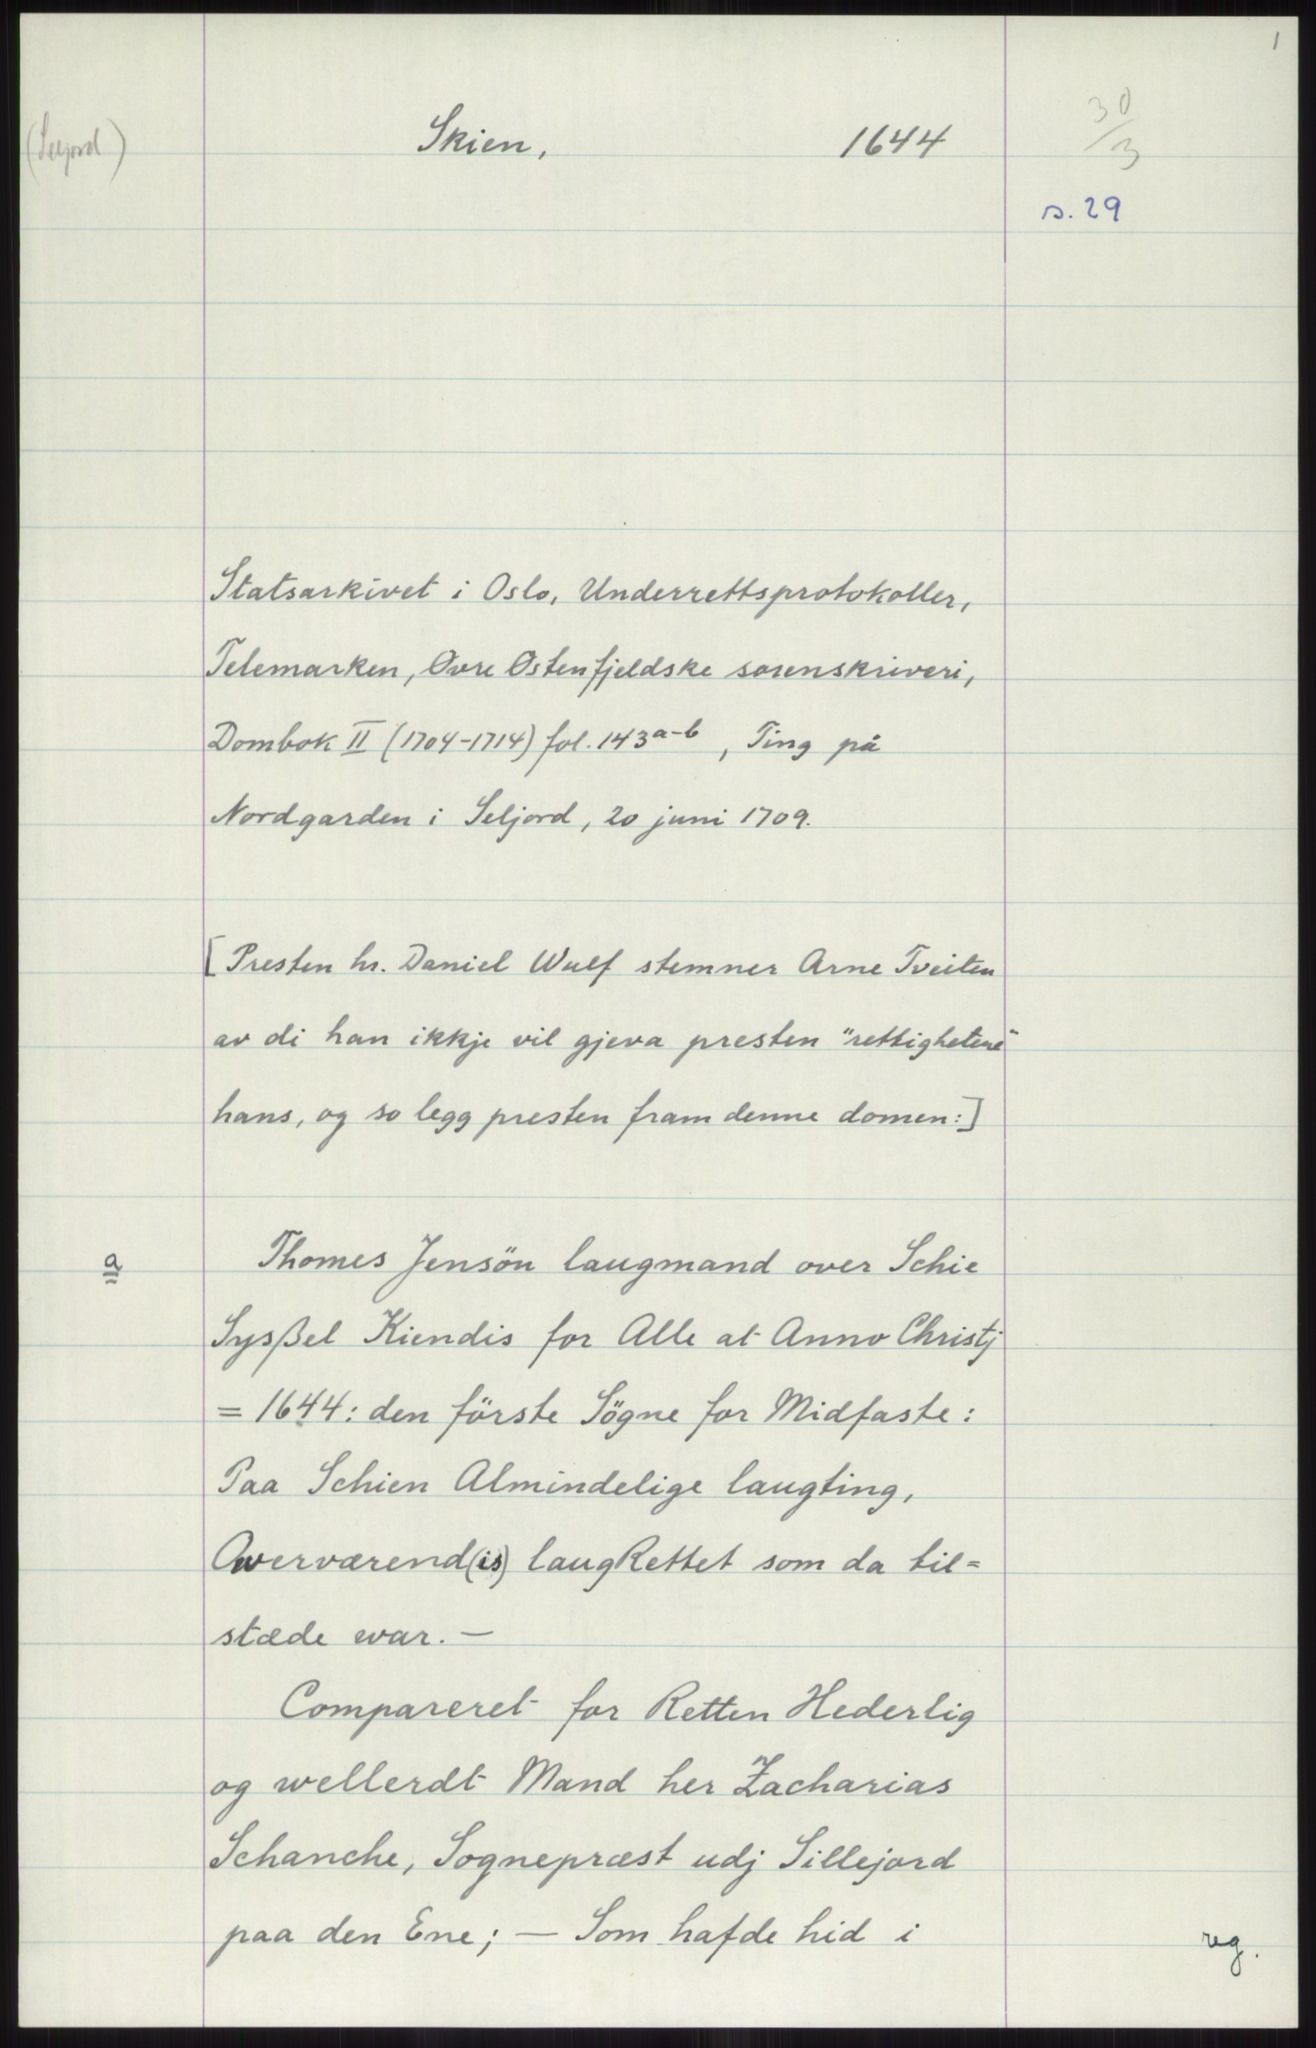 1
(Seljord)
Skien, 1644
30/3
s. 29
Statsarkivet i Oslo, Underrettsprotokoller,
Telemarken, Øvre Østenfjeldske sorenskriveri,
Dombok II (1704-1714) fol. 143a-b, Ting på
Nordgarden i Seljord, 20 juni 1709.
[Presten hr. Daniel Wulf stemner Arne Tveiten
av di han ikkje vil gjeva presten "rettighetene"
hans, og so legg presten fram denne domen:]
a
Thomes Jensön laugmand over Schie
Sysßel Kiendis for Alle at Anno Christj
= 1644: den förste Sögne for Midfaste:
Paa Schien Almindelige laugting,
Owerværend(is) laugRettet som da til=
stæde war. —
Compareret for Retten Hederlig
og wellerdt Mand her Zacharias
Schanche, Sognepræst udj Sillejord
paa den Ene; — Som hafde hid i
reg.